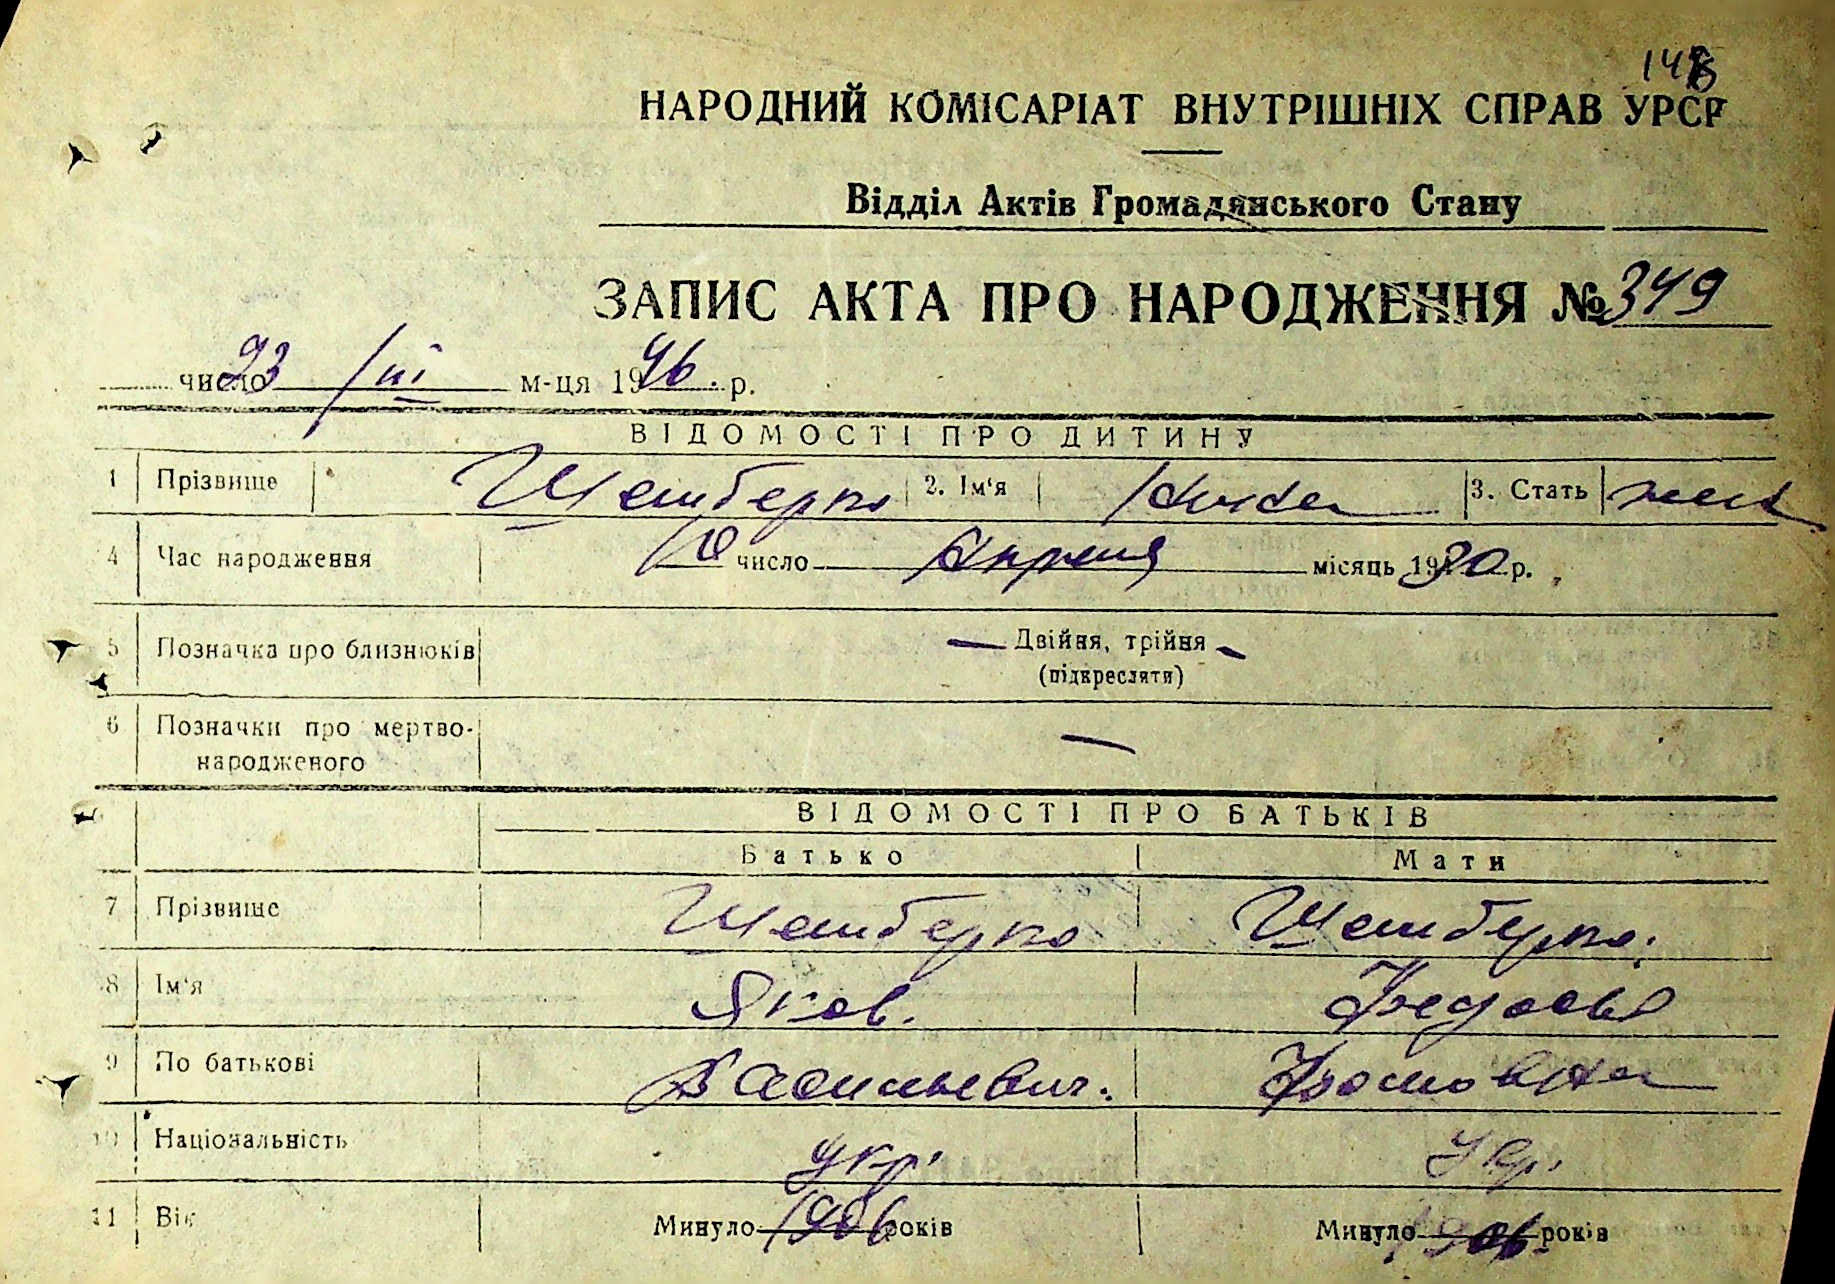 148
НАРОДНИЙ КОМІСАРІАТ ВНУТРІШНІХ СПРАВ УРСР
Відділ Актів Громадянського Стану
ЗАПИС АКТА ПРО НАРОДЖЕННЯ № 349
число 23 /III м-ця 1946. р.
ВІДОМОСТІ ПРО ДИТИНУ
1 Прізвище Шемберко 2. Ім'я Анна 3. Стать жен
4 Час народження 10 число Апреля місяць 1930 р.
5 Позначка про близнюків — Двійня, трійня —
(підкресляти)
6 Позначки про мертво-
народженого —
ВІДОМОСТІ ПРО БАТЬКІВ
Батько Мати
7 Прізвище Шемберко Шемберко.
8 Ім'я Яков. Федосья
9 По батькові Васильевич. Фомовна
10 Національність укр. Укр.
11 Вік Минуло 1906 років Минуло 1906. років